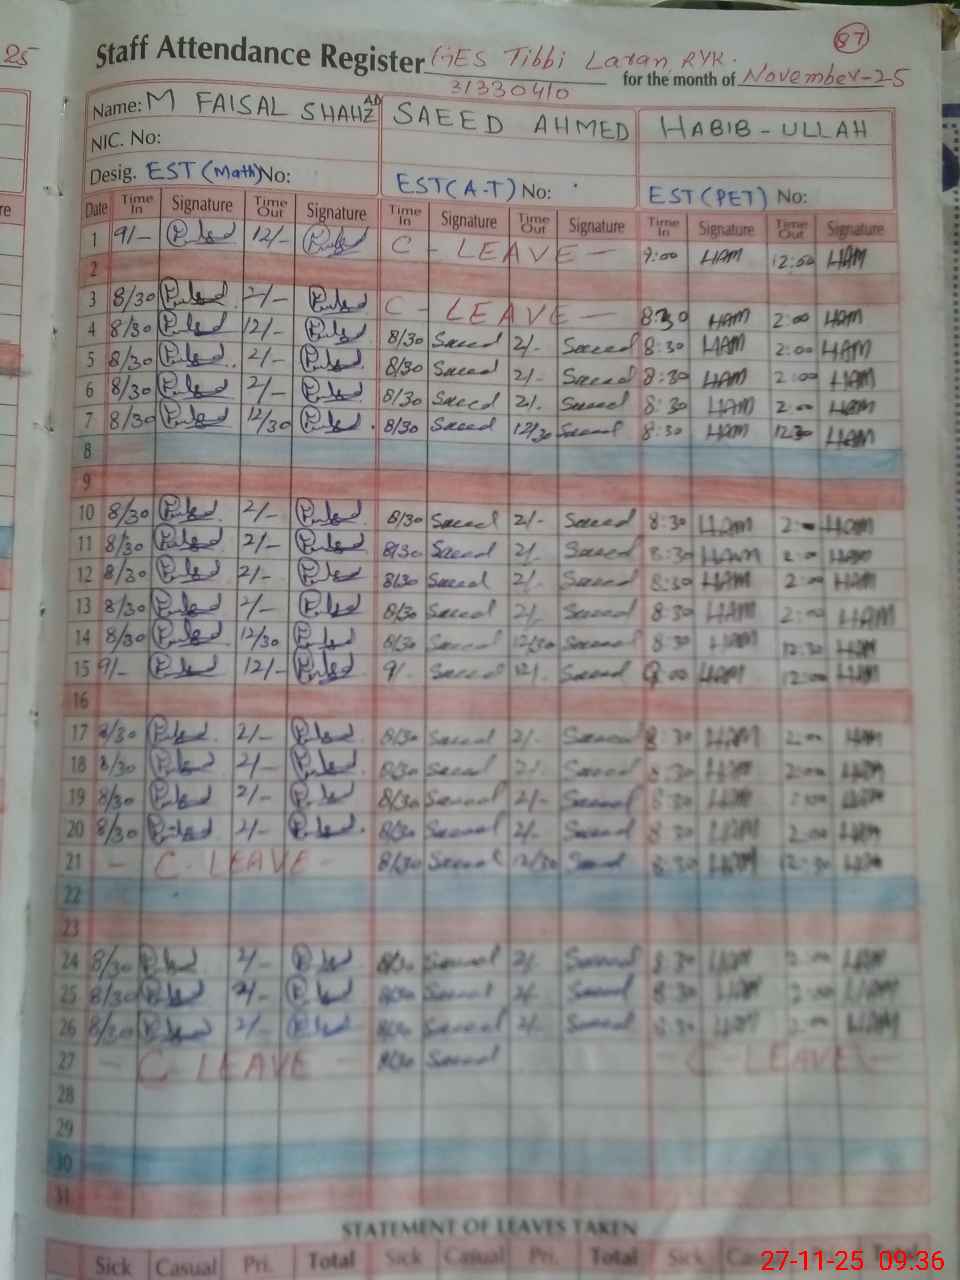 25
87
Staff Attendance Register GES Tibbi Laran RYK. for the month of November-25
31330410
Name: M FAISAL SHAHZAD SAEED AHMED HABIB-ULLAH
NIC. No:
Desig. EST (Math) No: EST(A-T) No: EST(PET) No:
Date Time In Signature Time Out Signature Time In Signature Time Out Signature Time In Signature Time Out Signature
1 9/- 12/- C - LEAVE - 9:00 HAM 12:00 HAM
2
3 8/30 2/- C - LEAVE - 8:30 HAM 2:00 HAM
4 8/30 12/- 8/30 Saeed 2/- Saeed 8:30 HAM 2:00 HAM
5 8/30 2/- 8/30 Saeed 2/- Saeed 8:30 HAM 2:00 HAM
6 8/30 2/- 8/30 Saeed 2/. Saeed 8:30 HAM 2:00 HAM
7 8/30 12/30 8/30 Saeed 12/30 Saeed 8:30 HAM 12:30 HAM
8
9
10 8/30 2/- 8/30 Saeed 2/- Saeed 8:30 HAM 2:00 HAM
11 8/30 2/- 8/30 Saeed 2/. Saeed 8:30 HAM 2:00 HAM
12 8/30 2/- 8/30 Saeed 2/. Saeed 8:30 HAM 2:00 HAM
13 8/30 2/- 8/30 Saeed 2/. Saeed 8:30 HAM 2:00 HAM
14 8/30 12/30 8/30 Saeed 12/30 Saeed 8:30 HAM 12:30 HAM
15 9/- 12/- 9/. Saeed 12/. Saeed 9:00 HAM 12:00 HAM
16
17 8/30 2/- 8/30 Saeed 2/. Saeed 8:30 HAM 2:00 HAM
18 8/30 2/- 8/30 Saeed 2/. Saeed 8:30 HAM 2:00 HAM
19 8/30 2/- 8/30 Saeed 2/- Saeed 8:30 HAM 2:00 HAM
20 8/30 2/- 8/30 Saeed 2/. Saeed 8:30 HAM 2:00 HAM
21 - C - LEAVE - 8/30 Saeed 12/30 Saeed 8:30 HAM 12:30 HAM
22
23
24 8/30 2/- 8/30 Saeed 2/. Saeed 8:30 HAM 2:00 HAM
25 8/30 2/- 8/30 Saeed 2/. Saeed 8:30 HAM 2:00 HAM
26 8/30 2/- 8/30 Saeed 2/. Saeed 8:30 HAM 2:00 HAM
27 - C LEAVE - 8/30 Saeed - C - LEAVE -
28
29
30
31
STATEMENT OF LEAVES TAKEN
Sick Casual Pri. Total Sick Casual Pri. Total Sick Total
27-11-25 09:36